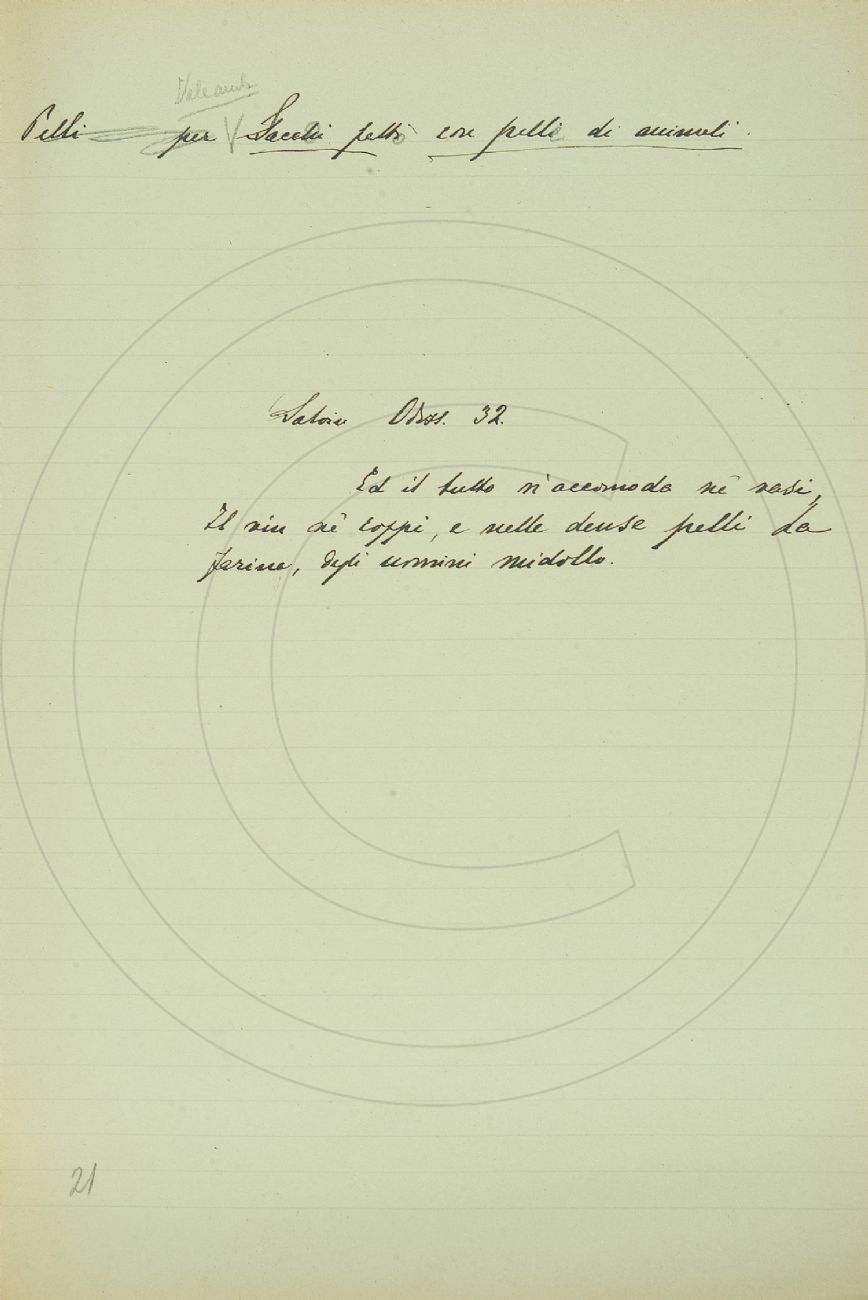 Pelli per Sacchi fatti con pelli di animali.
Salvini Odiss. 32.
Ed il tutto s'accomoda nè vasi,
Il vin nè coppi, e nelle dense pelli La
farina, degli uomini midollo.
21